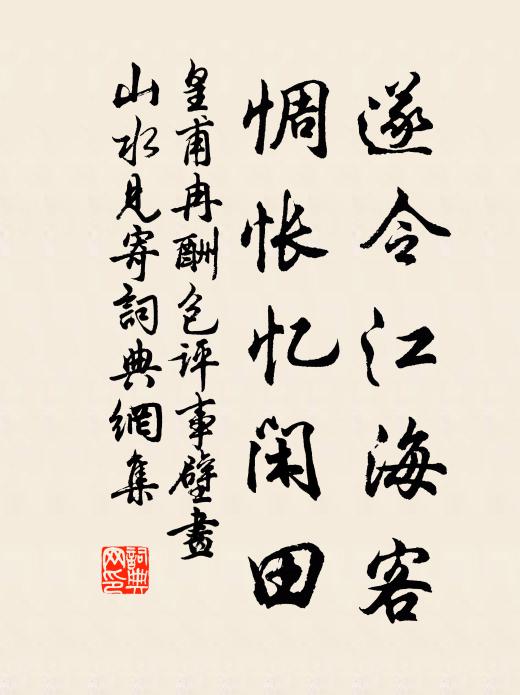 遂令江海客
惆怅忆闲田
皇甫冉酬包评事壁畫
山水見寄詞典網集
詞典
网印